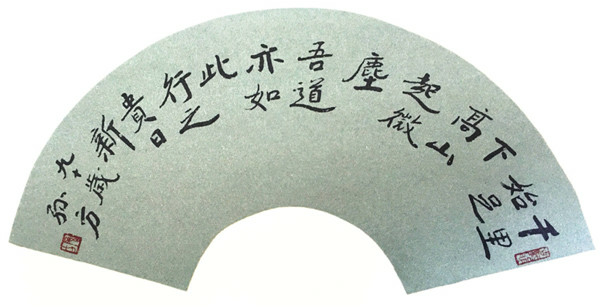 千里
始足
下
高山
起微
塵
吾道
亦如
此
行之
貴日
新
九十歲
孙方